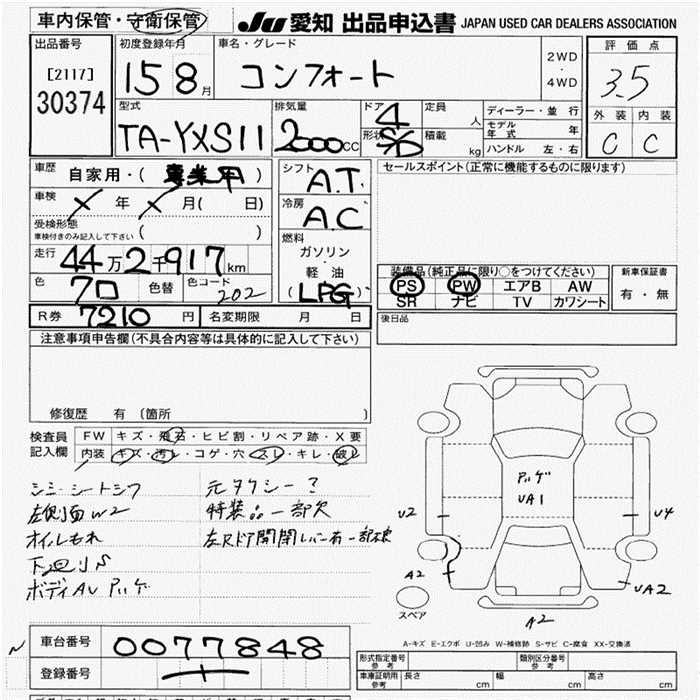 車内保管・守衛保管
JU 愛知 出品申込書 JAPAN USED CAR DEALERS ASSOCIATION
出品番号
[2117]
30374
初度登録年月
15 8月
車名・グレード
コンフォート
2WD
・
4WD
評価点
3.5
外装 内装
C C
型式
TA-YXS11
排気量
2000cc
ドア 4
形状 SD
定員 人
積載 kg
ディーラー・並行
モデル年式 年
ハンドル 左・右
車歴 自家用・(事業用)
車検 年 月(日)
受検形態
車検付きのみ記入して下さい ( )
走行 44万2千917km
色 クロ 色替 色コード 202
シフト A.T.
冷房 A.C
燃料
ガソリン
・
軽油
(LPG)
セールスポイント(正常に機能するものに限ります)
装備品(純正品に限り〇をつけてください)
PS PW エアB AW
SR ナビ TV カワシート
新車保証書
有・無
R券 7210円 名変期限 月 日
後日品
注意事項申告欄(不具合内容等は具体的に記入して下さい)
修復歴 有(箇所 )
検査員記入欄
FW キズ・飛石・ヒビ割・リペア跡・X要
内装 キズ・汚レ・コゲ・穴・スレ・キレ・破レ
シミ・シートシワ
左側面W2
オイルもれ
下廻りS
ボディAU アバゲ
元タクシー?
特装品一部欠
左Rドア開閉レバー有一部欠
アバゲ
UA1
U2
U4
A2
UA2
A2
スペア
A-キズ E-エクボ U-凹み W-補修跡 S-サビ C-腐食 XX-交換済
車台番号 0077848
登録番号
形式指定番号
参考
類別区分番号
参考
車庫証明用
参考
長さ cm 幅 cm 高さ cm